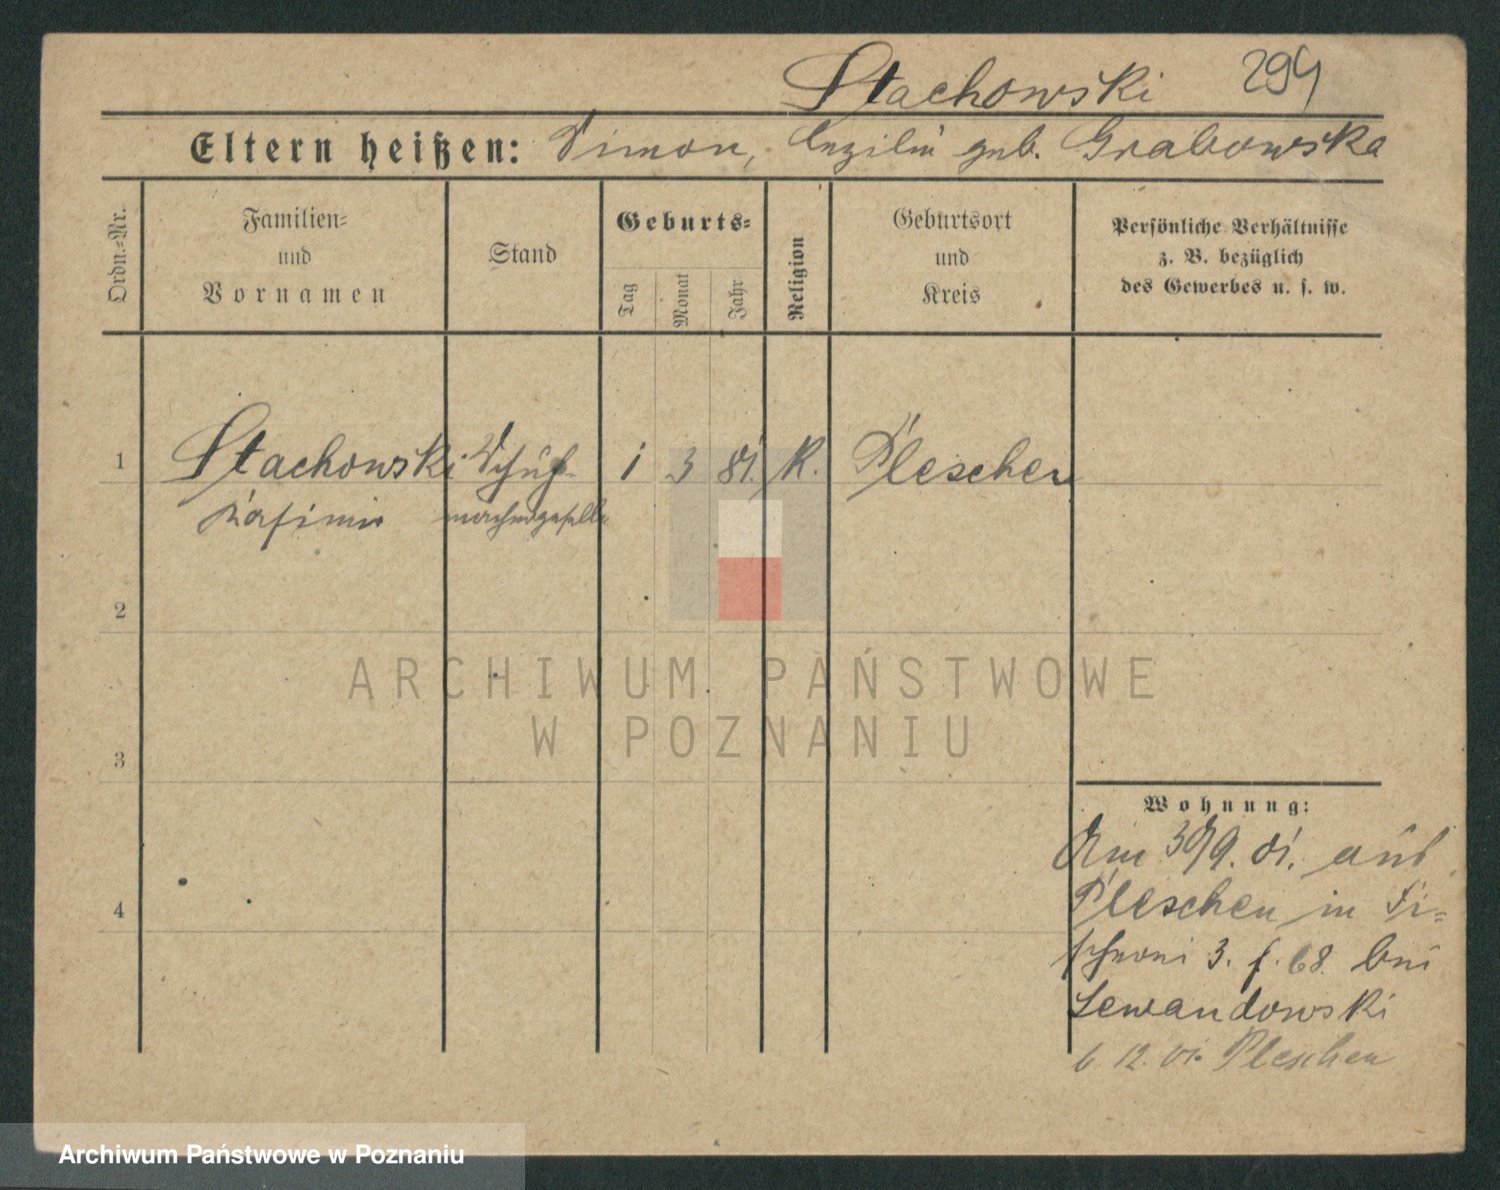 Stachowski 294
Eltern heißen: Simon, Cäzilie geb. Grabowska
Ordn.=Nr.
Familien=
und
Vornamen
Stand
Geburts=
Tag
Monat
Jahr
Religion
Geburtsort
und
Kreis
Persönliche Verhältnisse
z. B. bezüglich
des Gewerbes u. s. w.
1 Stachowski Schuh- 1 3 81. K. Pleschen
Kasimir machergeselle
2
3
4
Wohnung:
Am 30/9. 01. aus
Pleschen in Fi=
scherei 3. 68. bei
Lewandowski
6. 12. 01. Pleschen
ARCHIWUM PAŃSTWOWE
W POZNANIU
Archiwum Państwowe w Poznaniu